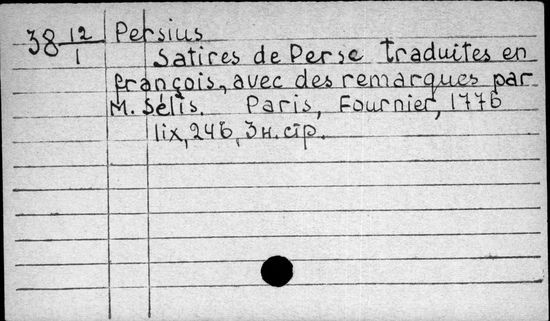 38 12/1 Persius
Satires de Perse traduites en
françois, avec des remarques par
M. Sélis. Paris, Fournier, 1776
lix, 246, 3 н. стр.